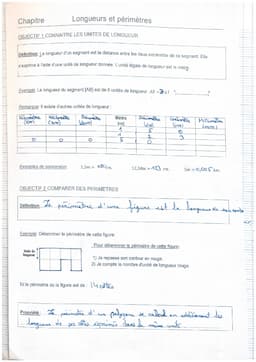 Chapitre Longueurs et périmètres
OBJECTIF 1 CONNAITRE LES UNITES DE LONGUEUR
Définition: La longueur d'un segment est la distance entre les deux extrémités de ce segment. Elle
s'exprime à l'aide d'une unité de longueur donnée. L'unité légale de longueur est le mètre.
Exemple: La longueur du segment [AB] est de 8 unités de longueur. AB =
Remarque: Il existe d'autres unités de longueur :
Kilomètre Hectomètre Décamètre Mètre Décimètre Centimètre Millimètre
(km) (hm) (dam) (m) (dm) (cm) (mm)
Exemples de conversion:
OBJECTIF 2 COMPARER DES PERIMETRES
Définition: Le périmètre d'une figure est la longueur de son contour
Exemple: Déterminer le périmètre de cette figure.
Unité de
longueur
Pour déterminer le périmètre de cette figure:
1) Je repasse son contour en rouge.
2) Je compte le nombre d'unité de longueur rouge.
Et le périmètre de la figure est de : 14 unités
Propriété: Le périmètre d'un polygone se calcule en additionnant les
longueurs de ses côtés exprimées dans la même unité.